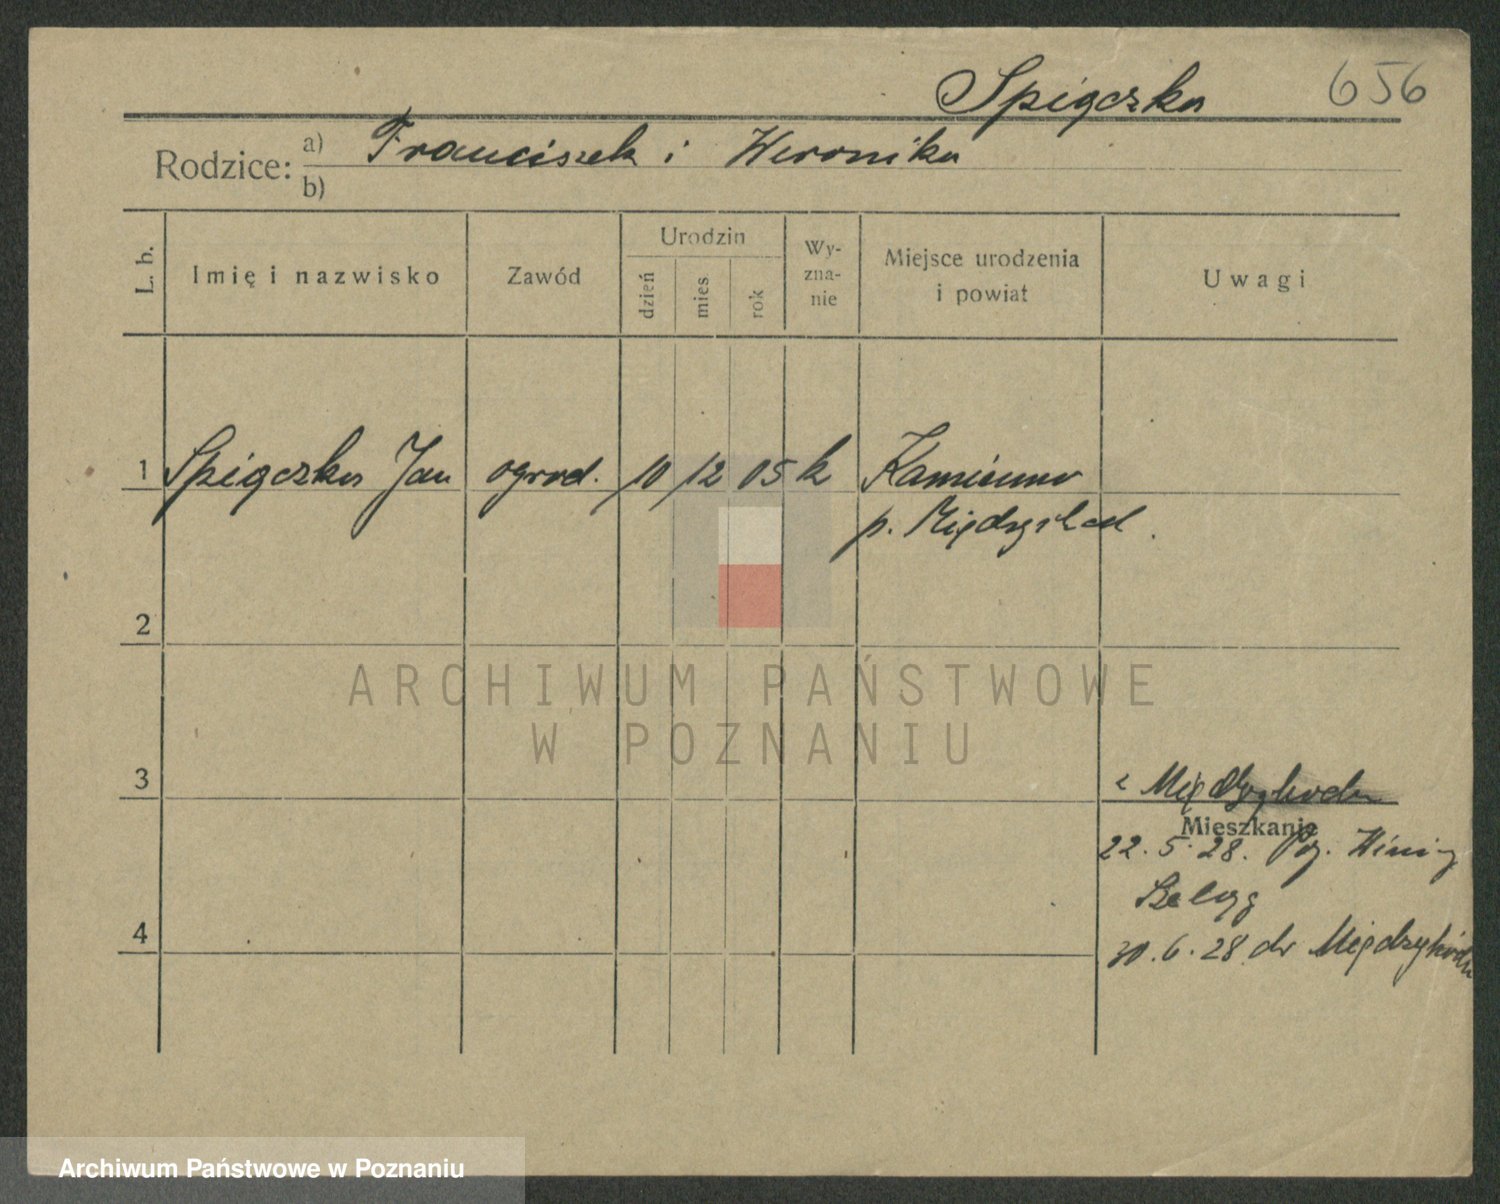 Spiączka 656
Rodzice: a) Franciszek i Weronika
b)
L. b. Imię i nazwisko Zawód Urodzin dzień mies rok Wy-zna-nie Miejsce urodzenia i powiat Uwagi
1 Spiączka Jan ogrod. 10 12 05 k Kamionna
p. Międzychod.
2
ARCHIWUM PAŃSTWOWE
W POZNANIU
3
z Międzychodu
Mieszkanie
22. 5. 28.
4
30. 6. 28 do Międzychodu
Archiwum Państwowe w Poznaniu